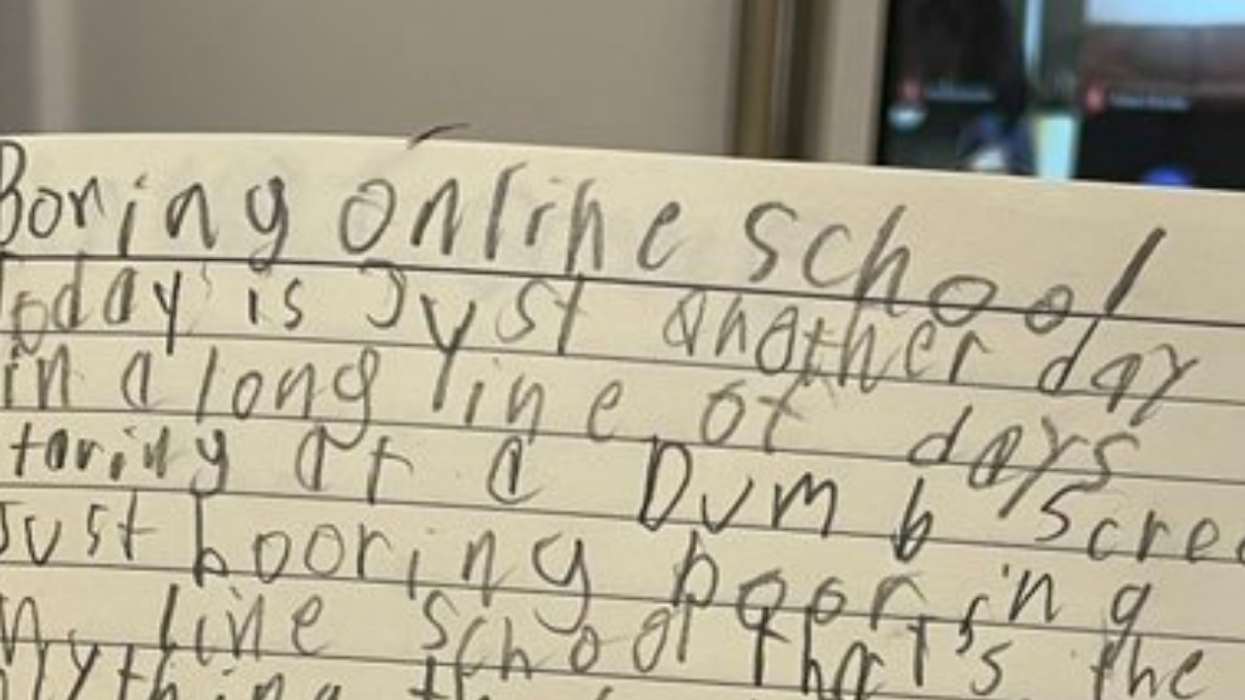 Boring online school
Today is Just another day
in a long line of days
taring at a Dumb Scree
Just booring booring
line school that's the